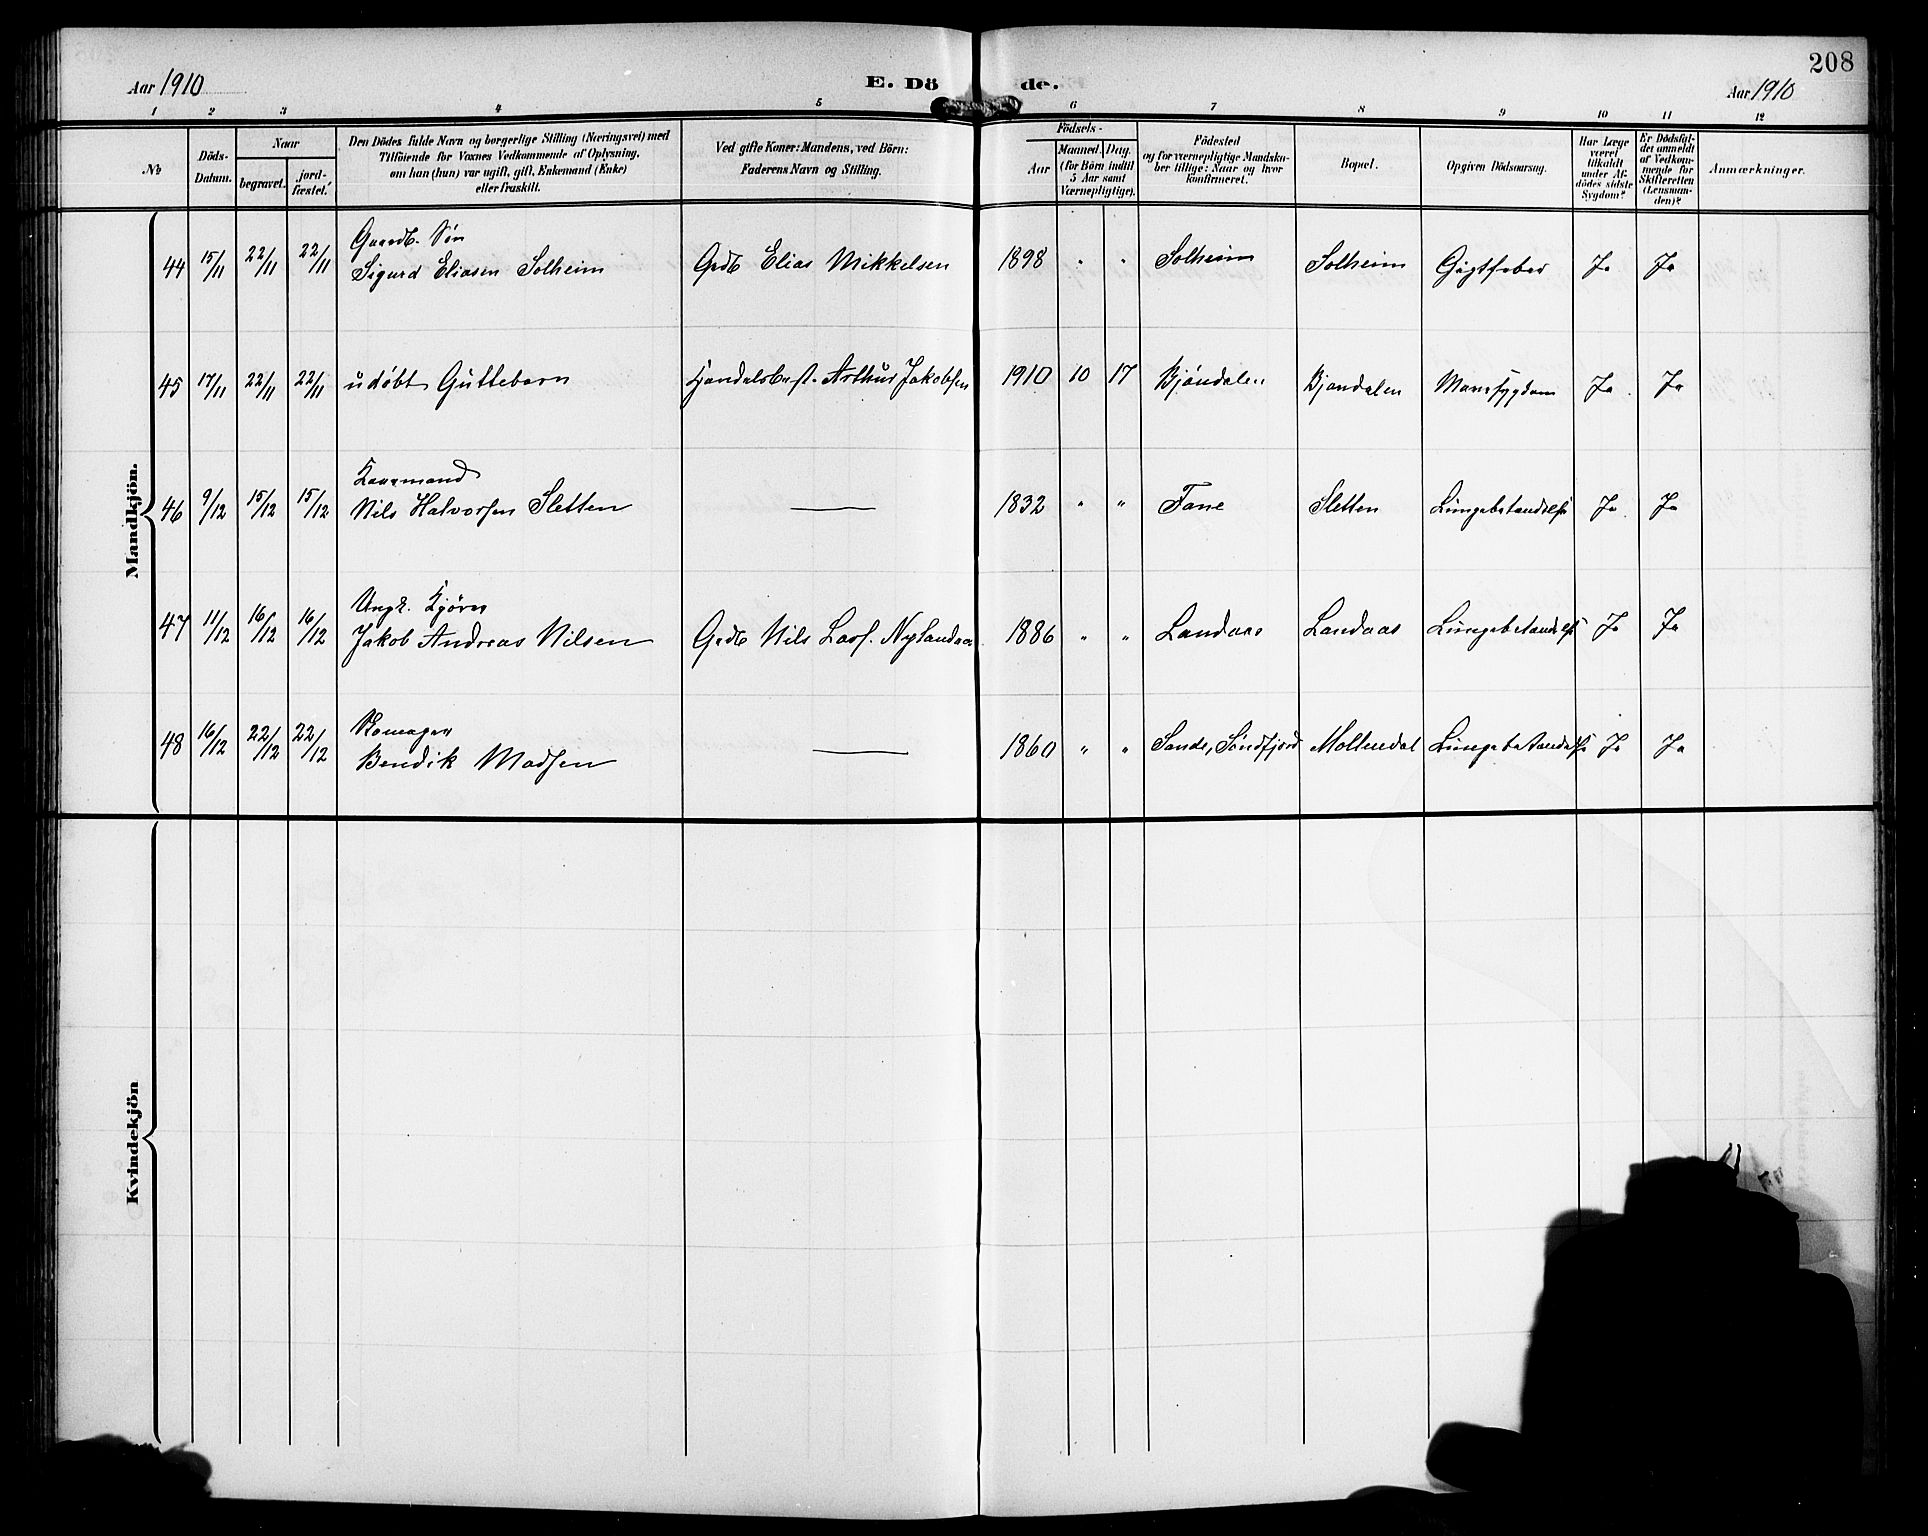 208
Aar 1910
E. Dö
de.
Aar 1910
1 2 3 4 5 6 7 8 9 10 11 12
No
Döds-
Datum.
Naar
begravet.
jord-
fæstet.
Den Dödes fulde Navn og borgerlige Stilling (Næringsvei) med
Tilföiende for Voxnes Vedkommende af Oplysning,
om han (hun) var ugift, gift, Enkemand (Enke)
eller fraskilt.
Ved gifte Koner: Mandens, ved Börn:
Faderens Navn og Stilling.
Födsels-
Aar
Maaned. Dag.
(for Börn indtil
5 Aar samt
Værnepligtige).
Födested
og for værnepligtige Mandska-
ber tillige: Naar og hvor
konfirmeret.
Bopæl.
Opgiven Dödsaarsag.
Har Læge
været
tilkaldt
under Af-
dödes sidste
Sygdom?
Er Dödsfal-
det anmeldt
af Vedkom-
mende for
Skifteretten
(Lensman-
den)?
Anmærkninger.
Mandkjön.
Gaardb. Søn
44 15/11 22/11 22/11 Sigurd Eliasen Solheim Grdb Elias Mikkelsen 1898 " " Solheim Solheim Gigtfeber Ja Ja
45 17/11 22/11 22/11 udöbt Guttebarn Arthur Jakobsen 1910 10 17 Bjöndalen Bjøndalen Ja Ja
Kaarmand
46 9/12 15/12 15/12 Nils Halvorsen Sletten — 1832 " " Fane Sletten Lungebetændelse Ja Ja
Ungk. Kjører
47 11/12 16/12 16/12 Jakob Andreas Nilsen Grdb Nils Lars. Nylandaas 1886 " " Landaas Landaas Lungebetændelse Ja Ja
48 16/12 22/12 22/12 Bendik Madsen — 1860 " " Sande, Söndfjord Møllendal Lungebetændelse Ja Ja
Kvindekjön